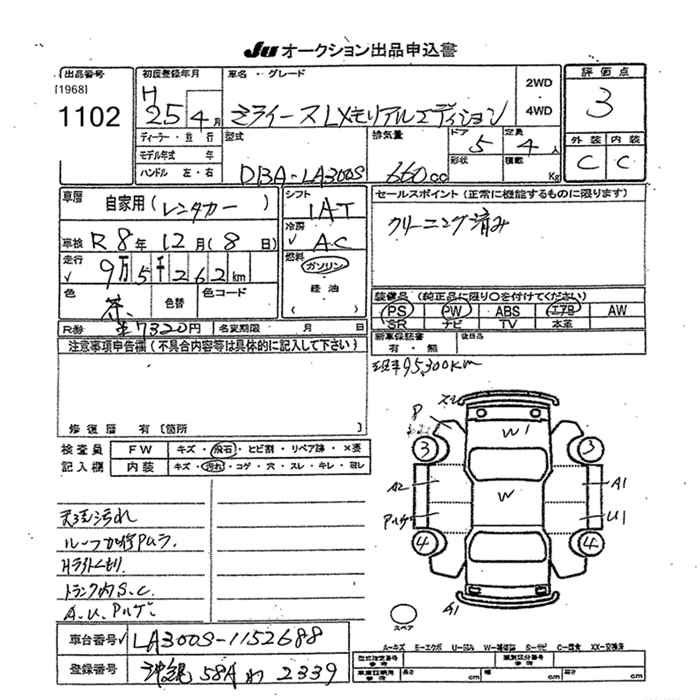 JU オークション出品申込書
出品番号
[1968]
1102
初度登録年月
H 25年 4月
車名・グレード
ミライース LXメモリアルエディション
2WD
・
4WD
評価点
3
外装 内装
C C
ディーラー・並行
モデル年式 年
ハンドル 左・右
型式
DBA-LA300S
排気量
660cc
ドア
5
形状
定員
4人
積載
Kg
車歴
自家用(レンタカー)
車検 R8年12月(8日)
走行 √
9万5千262km
色
茶
色替
色コード
R券 金7320円
名変期限 月 日
シフト
IAT
冷房 √
AC
燃料
ガソリン
・
軽油
( )
セールスポイント(正常に機能するものに限ります)
クリーニング済み
装備品(純正品に限り○を付けてください)
PS PW ABS エアB AW
SR ナビ TV 本革
新車保証書
有・無
後日品
現車95,300km
注意事項申告欄(不具合内容等は具体的に記入して下さい)
修復歴 有[箇所 ]
検査員
記入欄
FW キズ・飛石・ヒビ割・リペア跡・×要
内装 キズ・汚れ・コゲ・穴・スレ・キレ・凹レ
天張汚れ
Hライトくもり
トランク内S.C.
A.U.Pルゲ
スレ
P
W1
3
3
A2
W
A1
U1
4
4
A1
スペア
A-キズ E-エクボ U-凹み W-補修跡 S-サビ C-腐食 XX-交換済
車台番号√ LA300S-1152688
登録番号 沖縄 58A わ 2339
型式指定番号
類別区分番号
車庫証明用
参考
長さ cm 幅 cm 高さ cm